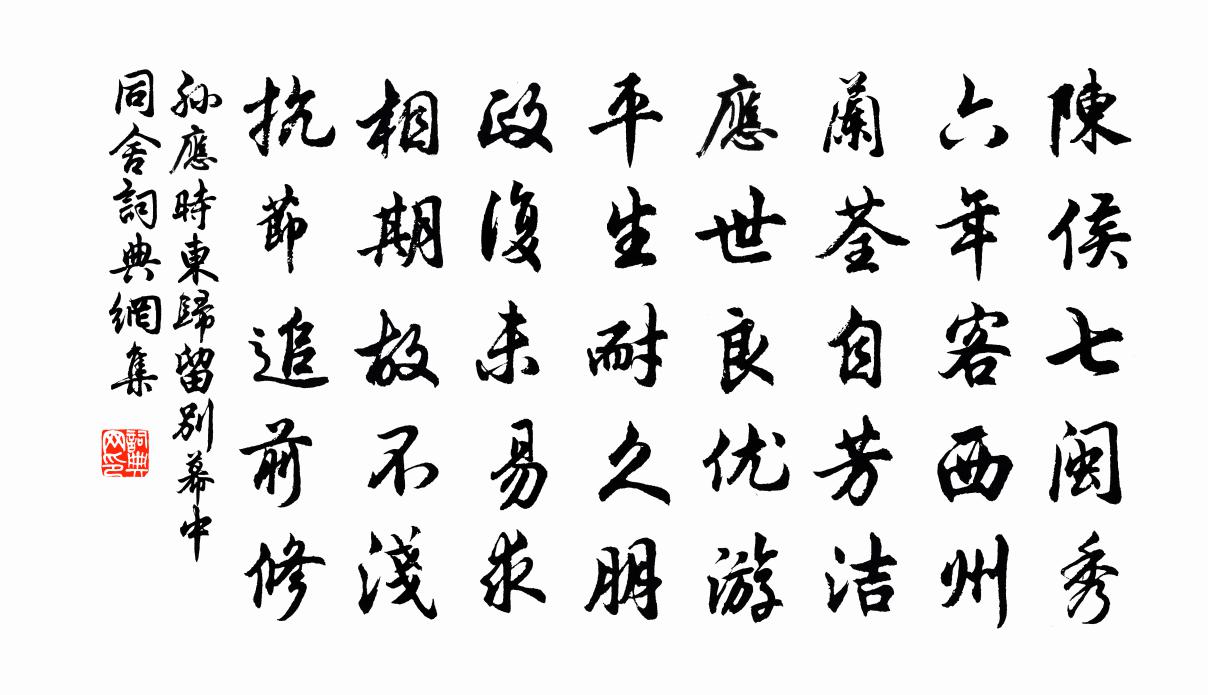 陳侯七閩秀
六年客西州
蘭荃自芳洁
應世良优游
平生耐久朋
政復未易求
相期故不淺
抗節追前修
孙應時東歸留別幕中
同舍詞典網集
詞典
网印